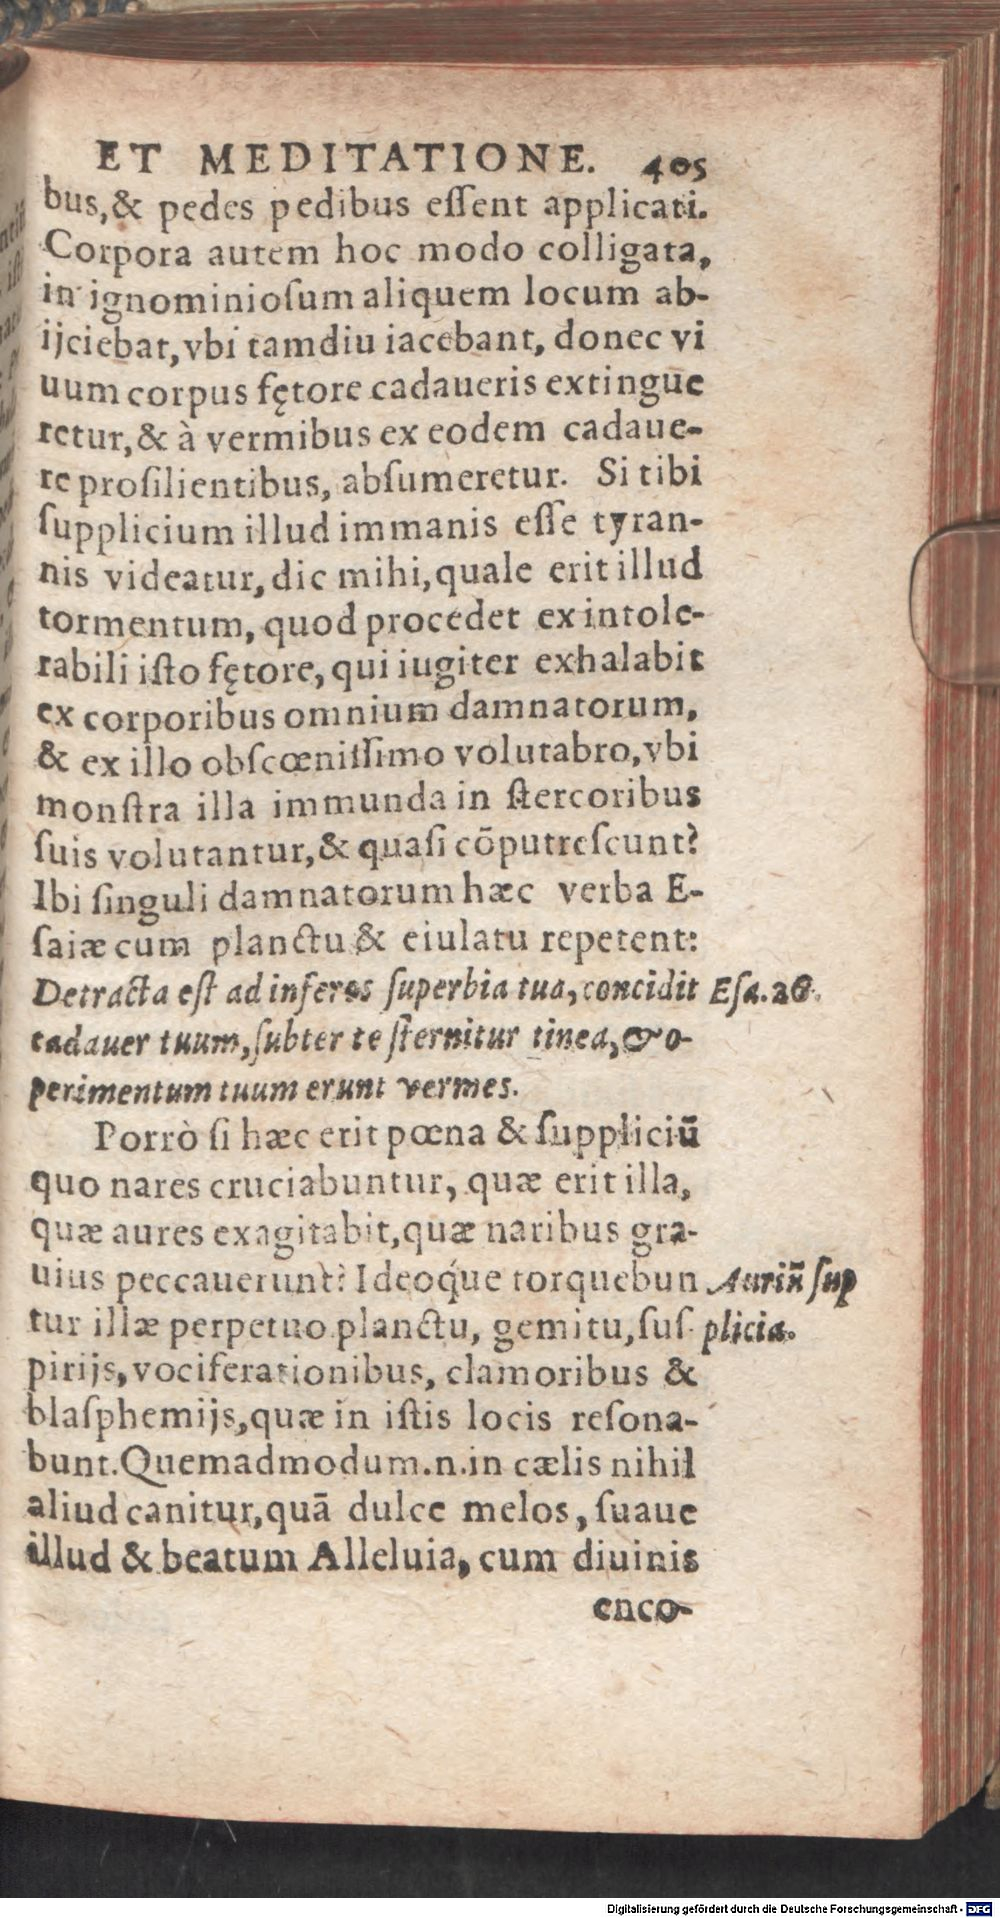 ET MEDITATIONE. 405
bus,& pedes pedibus eſſent applicati.
Corpora autem hoc modo colligata,
in ignominioſum aliquem locum ab-
ijciebat, vbi tamdiu iacebant, donec vi
uum corpus fętore cadaueris extingue
retur,& à vermibus ex eodem cadaue-
re proſilientibus, abſumeretur. Si tibi
ſupplicium illud immanis eſſe tyran-
nis videatur, dic mihi, quale erit illud
tormentum, quod procedet ex intole-
rabili iſto fętore, qui iugiter exhalabit
ex corporibus omnium damnatorum,
& ex illo obſcœniſſimo volutabro, vbi
monſtra illa immunda in ſtercoribus
ſuis volutantur,& quaſi cōputreſcunt?
Ibi ſinguli damnatorum hæc verba E-
ſaiæ cum planctu & eiulatu repetent:
Detracta eſt ad inferos ſuperbia tua, concidit Eſa.
cadauer tuum, ſubter te ſternitur tinea, & o-
perimentum tuum erunt vermes.
Porrò ſi hæc erit pœna & ſuppliciū
quo nares cruciabuntur, quæ erit illa,
quæ aures exagitabit, quæ naribus gra-
uius peccauerunt? Ideoq́ue torquebun Auriū ſup
tur illæ perpetuo planctu, gemitu, ſuſ- plicia.
pirijs, vociferationibus, clamoribus &
blaſphemijs, quæ in iſtis locis reſona-
bunt. Quemadmodum .n. in cælis nihil
aliud canitur, quā dulce melos, ſuaue
illud & beatum Alleluia, cum diuinis
enco-
Digitalisierung gefördert durch die Deutsche Forschungsgemeinschaft - DFG